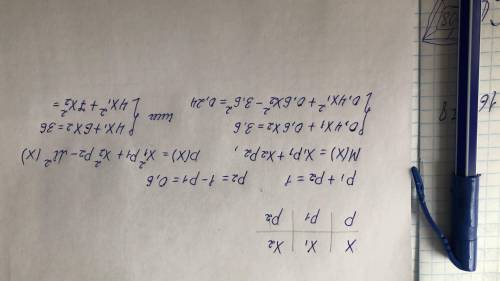 X X₁ X₂
P P₁ P₂
P₁ + P₂ = 1 P₂ = 1 - P₁ = 0,6
M(X) = X₁P₁ + X₂P₂ , D(X) = X₁²P₁ + X₂²P₂ - M²(X)
{ 0,4X₁ + 0,6X₂ = 3,6 { 4X₁ + 6X₂ = 36
или
0,4X₁² + 0,6X₂² - 3,6² = 0,24 4X₁² + 7X₂² =
16
8